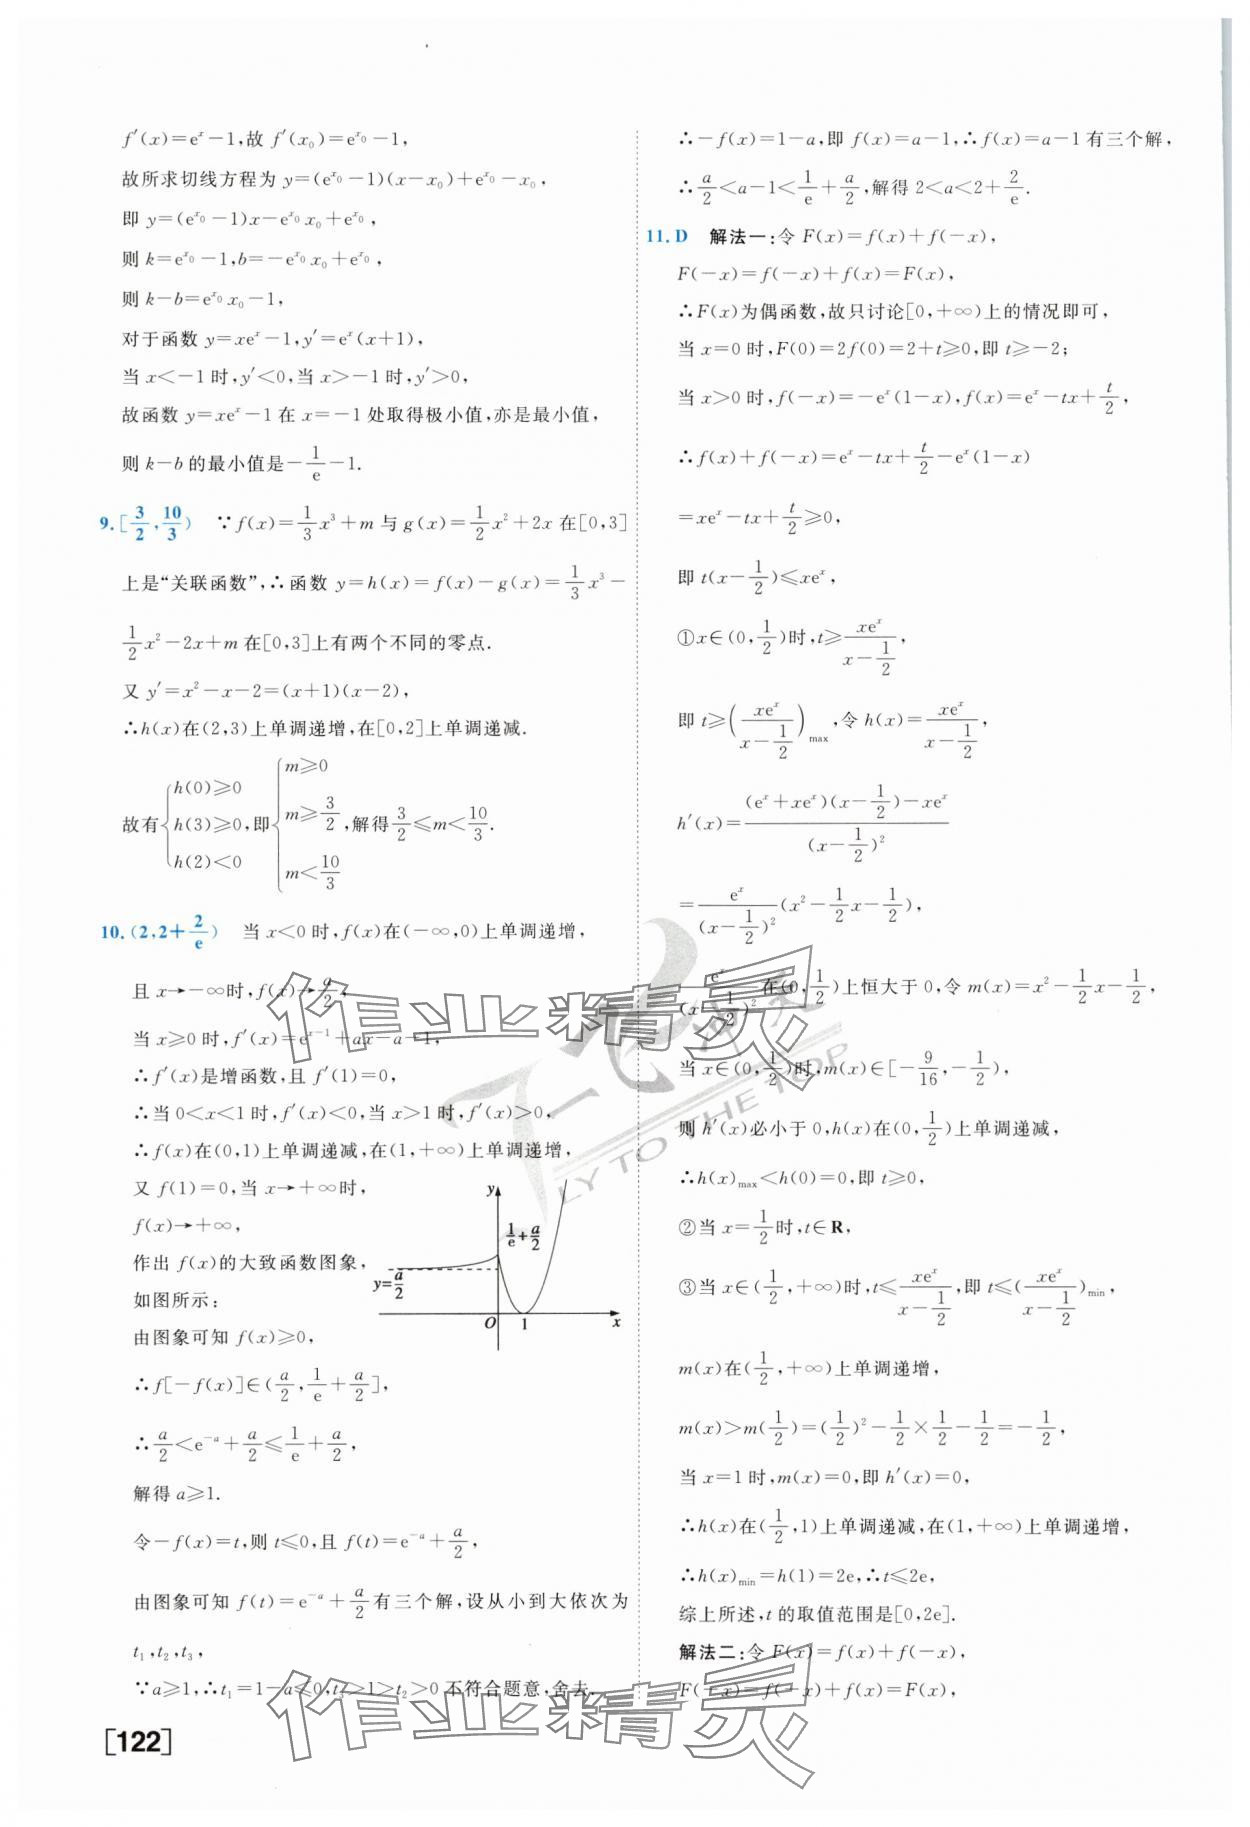 f′(x)=eˣ-1,故 f′(x₀)=e^{x₀}-1,
故所求切线方程为 y=(e^{x₀}-1)(x-x₀)+e^{x₀}-x₀,
即 y=(e^{x₀}-1)x-e^{x₀}x₀+e^{x₀},
则 k=e^{x₀}-1,b=-e^{x₀}x₀+e^{x₀},
则 k-b=e^{x₀}x₀-1,
对于函数 y=xeˣ-1,y′=eˣ(x+1),
当 x<-1 时,y′<0,当 x>-1 时,y′>0,
故函数 y=xeˣ-1 在 x=-1 处取得极小值,亦是最小值,
则 k-b 的最小值是-1/e-1.
9.[3/2,10/3) ∵f(x)=1/3x³+m 与 g(x)=1/2x²+2x 在[0,3]
上是“关联函数”,∴函数 y=h(x)=f(x)-g(x)=1/3x³-
1/2x²-2x+m 在[0,3]上有两个不同的零点.
又 y′=x²-x-2=(x+1)(x-2),
∴h(x)在(2,3)上单调递增,在[0,2]上单调递减.
故有{h(0)≥0 h(3)≥0 h(2)<0,即{m≥0 m≥3/2 m<10/3,解得3/2≤m<10/3.
10.(2,2+2/e) 当 x<0 时,f(x)在(-∞,0)上单调递增,
且 x→-∞时,f(x)→a/2,
当 x≥0 时,f′(x)=e^{x-1}+ax-a-1,
∴f′(x)是增函数,且 f′(1)=0,
∴当 0<x<1 时,f′(x)<0,当 x>1 时,f′(x)>0,
∴f(x)在(0,1)上单调递减,在(1,+∞)上单调递增,
又 f(1)=0,当 x→+∞时,
f(x)→+∞,
作出 f(x)的大致函数图象,
如图所示:
由图象可知 f(x)≥0,
y
1/e+a/2
y=a/2
O 1 x
∴f[-f(x)]∈(a/2,1/e+a/2],
∴a/2<e^{-a}+a/2≤1/e+a/2,
解得 a≥1.
令-f(x)=t,则 t≤0,且 f(t)=e^{-a}+a/2,
由图象可知 f(t)=e^{-a}+a/2有三个解,设从小到大依次为
t₁,t₂,t₃,
∵a≥1,∴t₁=1-a≤0,t₃>1>t₂>0 不符合题意,舍去.
[122]
∴-f(x)=1-a,即 f(x)=a-1,∴f(x)=a-1 有三个解,
∴a/2<a-1<1/e+a/2,解得 2<a<2+2/e.
11.D 解法一:令 F(x)=f(x)+f(-x),
F(-x)=f(-x)+f(x)=F(x),
∴F(x)为偶函数,故只讨论[0,+∞)上的情况即可,
当 x=0 时,F(0)=2f(0)=2+t≥0,即 t≥-2;
当 x>0 时,f(-x)=-eˣ(1-x),f(x)=eˣ-tx+t/2,
∴f(x)+f(-x)=eˣ-tx+t/2-eˣ(1-x)
=xeˣ-tx+t/2≥0,
即 t(x-1/2)≤xeˣ,
①x∈(0,1/2)时,t≥xeˣ/(x-1/2),
即 t≥(xeˣ/(x-1/2))max,令 h(x)=xeˣ/(x-1/2),
h′(x)=((eˣ+xeˣ)(x-1/2)-xeˣ)/(x-1/2)²
=eˣ/(x-1/2)²(x²-1/2x-1/2),
eˣ/(x-1/2)²在(0,1/2)上恒大于 0,令 m(x)=x²-1/2x-1/2,
当 x∈(0,1/2)时,m(x)∈[-9/16,-1/2),
则 h′(x)必小于 0,h(x)在(0,1/2)上单调递减,
∴h(x)max<h(0)=0,即 t≥0,
②当 x=1/2时,t∈R,
③当 x∈(1/2,+∞)时,t≤xeˣ/(x-1/2),即 t≤(xeˣ/(x-1/2))min,
m(x)在(1/2,+∞)上单调递增,
m(x)>m(1/2)=(1/2)²-1/2×1/2-1/2=-1/2,
当 x=1 时,m(x)=0,即 h′(x)=0,
∴h(x)在(1/2,1)上单调递减,在(1,+∞)上单调递增,
∴h(x)min=h(1)=2e,∴t≤2e,
综上所述,t 的取值范围是[0,2e].
解法二:令 F(x)=f(x)+f(-x),
F(-x)=f(-x)+f(x)=F(x),
作业精灵
作业精灵